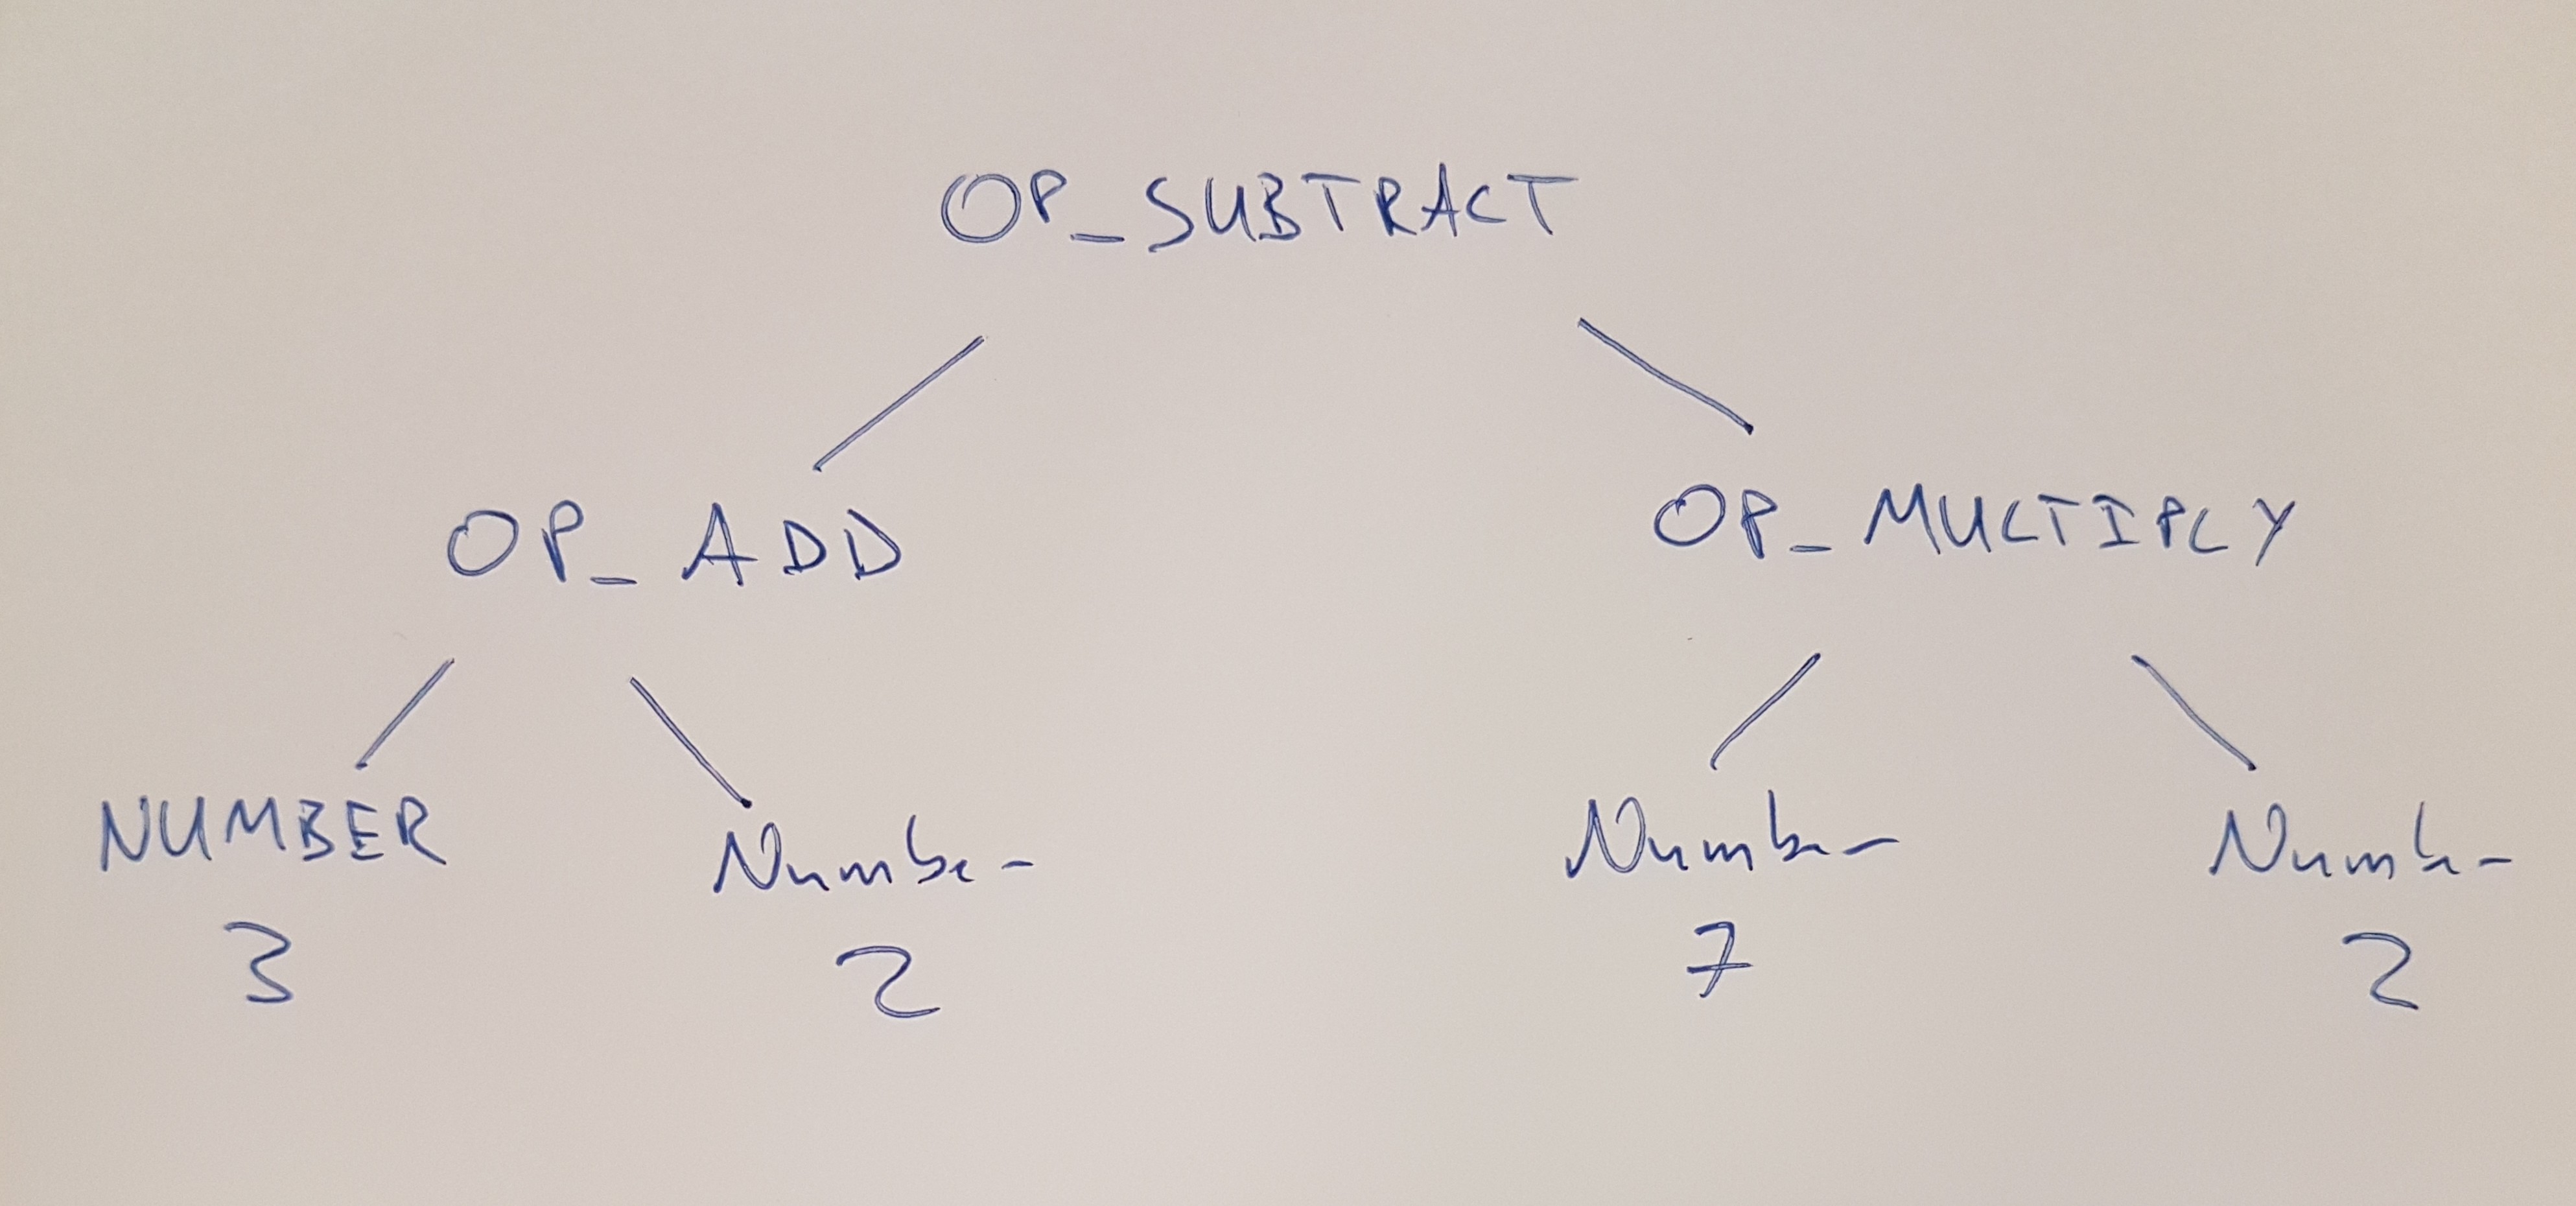 OP_SUBTRACT
OP_ADD OP_MULTIPLY
NUMBER Number Number Number
3 2 7 2